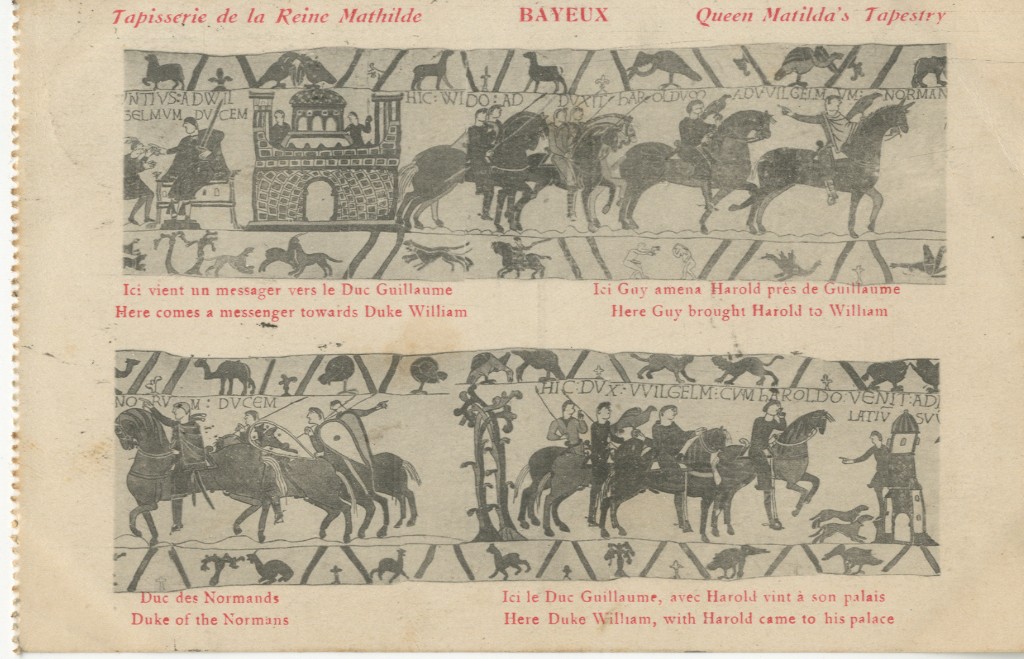 Tapisserie de la Reine Mathilde BAYEUX Queen Matilda's Tapestry
NTIVS: ADWIL HIC: WIDO: AD DUXIT hAROLDUM ADVVILGELMVM: NORMAN
GELMVM DVCEM
Ici vient un messager vers le Duc Guillaume
Here comes a messenger towards Duke William
Ici Guy amena Harold près de Guillaume
Here Guy brought Harold to William
HIC: DVX: VVILGELM: CVM hAROLDO: VENIT: AD
NORVM: DVCEM
LATIV SVV
Duc des Normands
Duke of the Normans
Ici le Duc Guillaume, avec Harold vint à son palais
Here Duke William, with Harold came to his palace